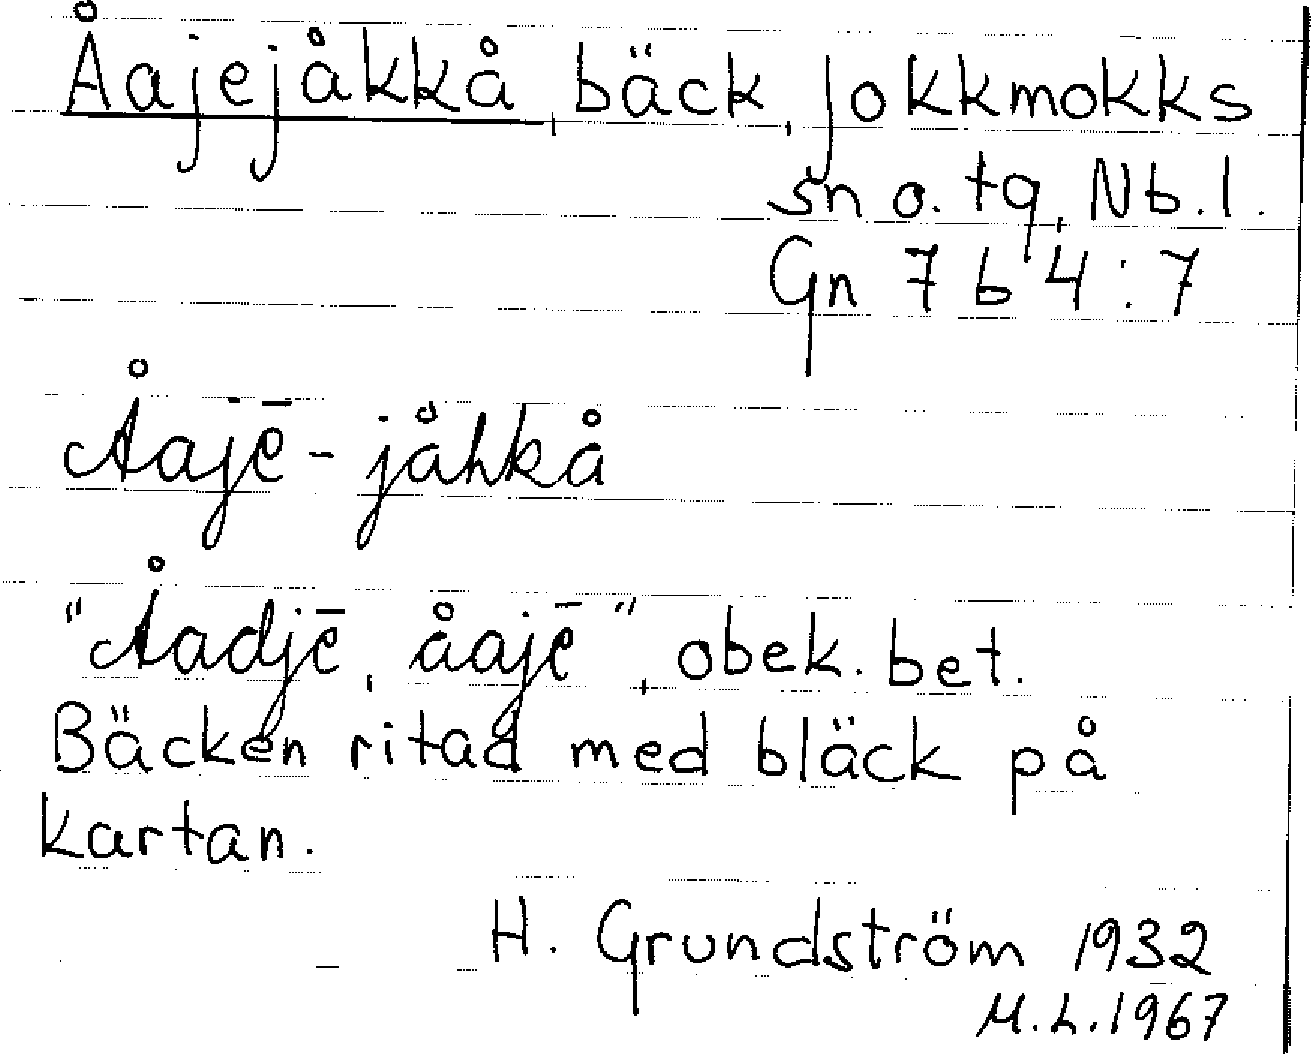 Åajejåkkå, bäck, Jokkmokks
sn o. tq, Nb.l.
Gn 7 b 4:7
Åajē-jåhkå
"Åadjē, åajē", obek. bet.
Bäcken ritad med bläck på
kartan.
H. Grundström 1932
M.L.1967